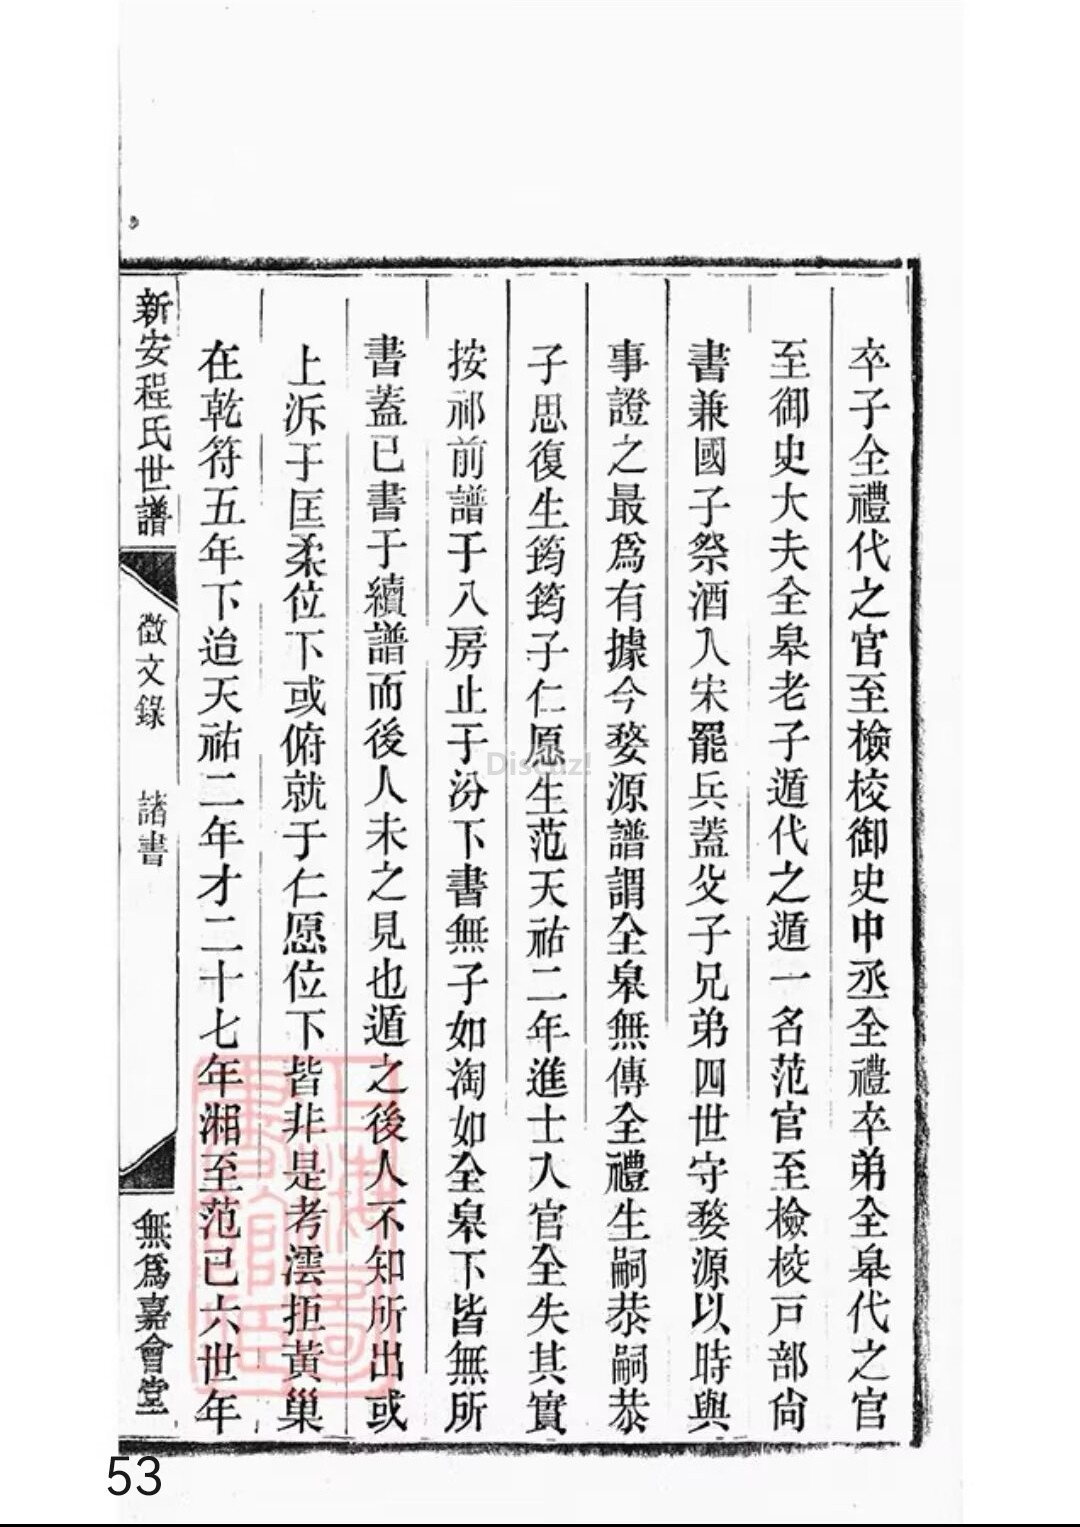 卒子全禮代之官至檢校御史中丞全禮卒弟全皋代之官
至御史大夫全皋老子遁代之遁一名范官至檢校戸部尚
書兼國子祭酒入宋罷兵蓋父子兄弟四世守婺源以時與
事證之最爲有據今婺源譜謂全皋無傳全禮生嗣恭嗣恭
子思復生筠筠子仁愿生范天祐二年進士入官全失其實
按祁前譜于八房止于汾下書無子如淘如全皋下皆無所
書蓋已書于續譜而後人未之見也遁之後人不知所出或
上泝于匡柔位下或俯就于仁愿位下皆非是考澐拒黃巢
在乾符五年下迨天祐二年才二十七年湘至范已六世年
新安程氏世譜
徵文錄 諸書
無爲嘉會堂
上海圖書館藏
Discuz!
53